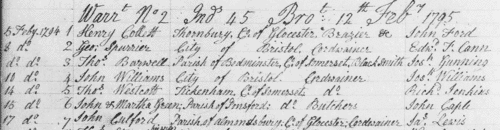 Warr.t No 2 Ind.s 45 Bro.t 12th Feby 1795
5 Feby. 1794 1 Henry Collett Thornbury, C.o of Glocester Brazier &c John Ford
8 do 2 Geo. Spurrier City of Bristol Cordwainer Edw.d F. Cann
do do 3 Tho.s Barwell Parish of Bedminster, C.o of Somerset, Black Smith Jos. Gunning
10 do 4 John Williams City of Bristol Cordwainer Jos. Williams
14 do 5 Tho.s Westcott Tickenham, C.o of Somerset, do Rich.d Jenkins
16 do 6 John & Martha Green, Parish of Pensford, do Butchers John Caple
17 do 7 John Culford Parish of Almondsbury, C.o of Glocester, Cordwainer Ja.s Lewis